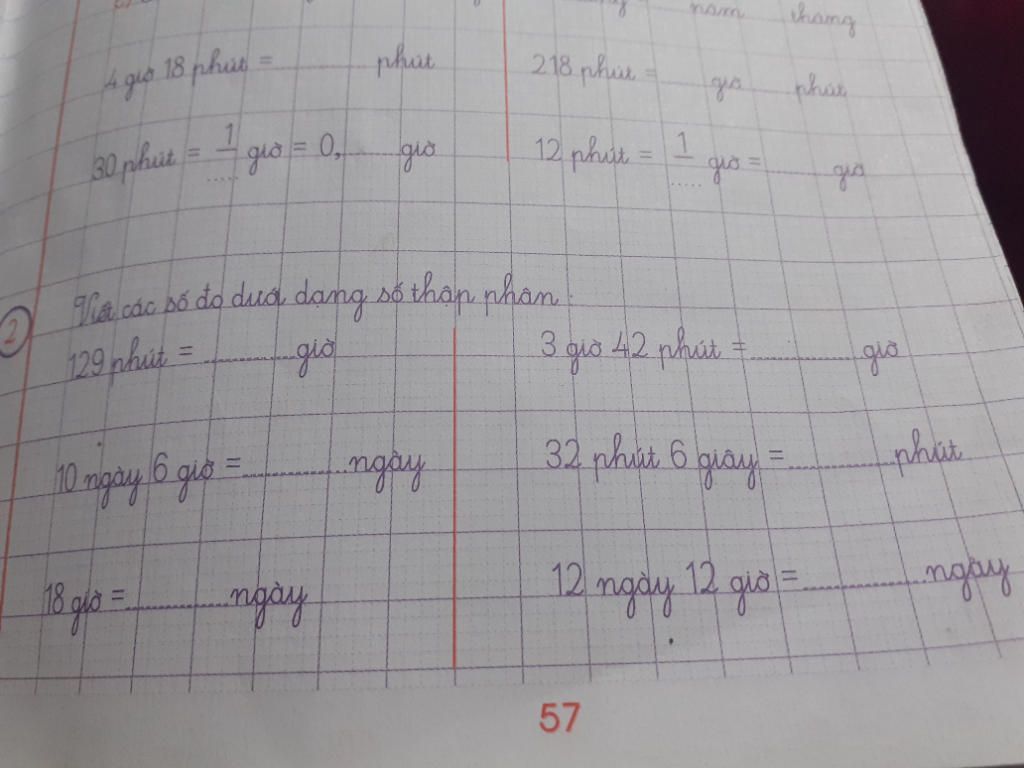 năm tháng
4 giờ 18 phút = ........ phút 218 phút = ...... giờ phút
30 phút = 1/..... giờ = 0, ..... giờ 12 phút = 1/..... giờ = ........ giờ
2 Viết các số đo dưới dạng số thập phân.
129 phút = .......... giờ 3 giờ 42 phút = .......... giờ
10 ngày 6 giờ = .......... ngày 32 phút 6 giây = .......... phút
18 giờ = .......... ngày 12 ngày 12 giờ = .......... ngày
57